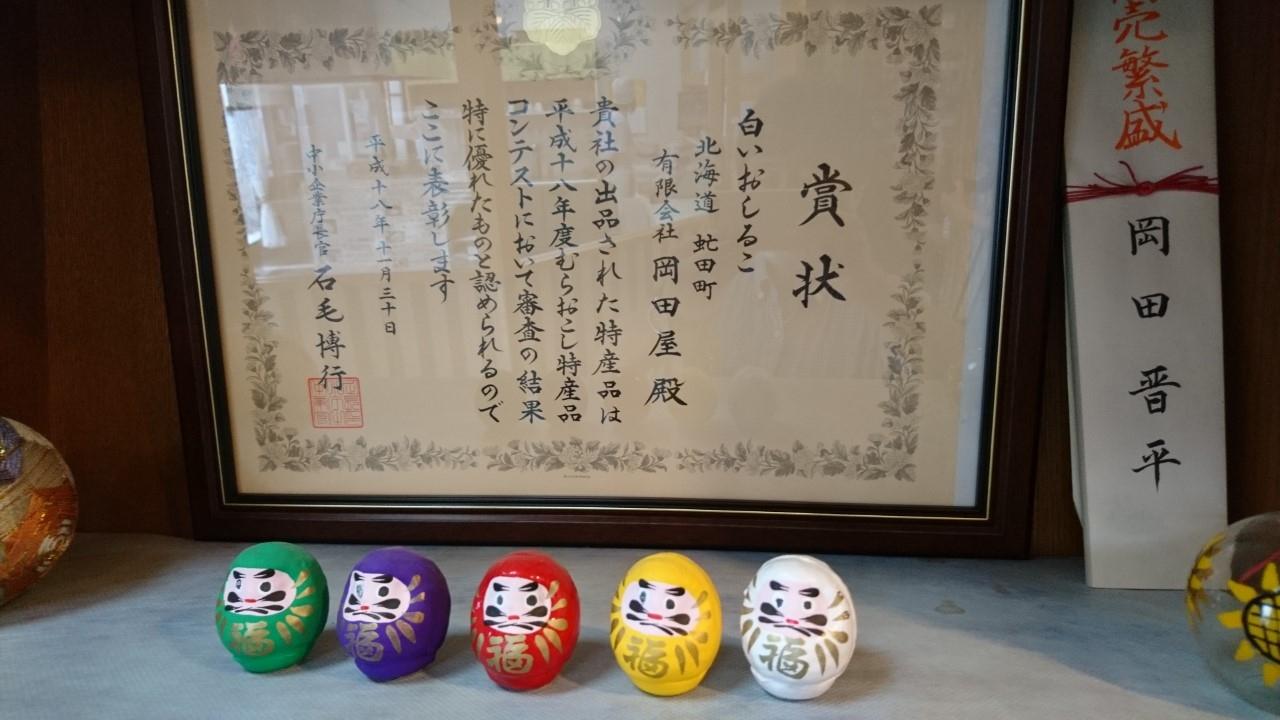 賞状
白いおしるこ
北海道 虻田町
有限会社 岡田屋 殿
貴社の出品された特産品は
平成十八年度むらおこし特産品
コンテストにおいて審査の結果
特に優れたものと認められるので
ここに表彰します
平成十八年十一月三十日
中小企業庁長官 石毛博行
売繁盛
岡田晋平
福
福
福
福
福